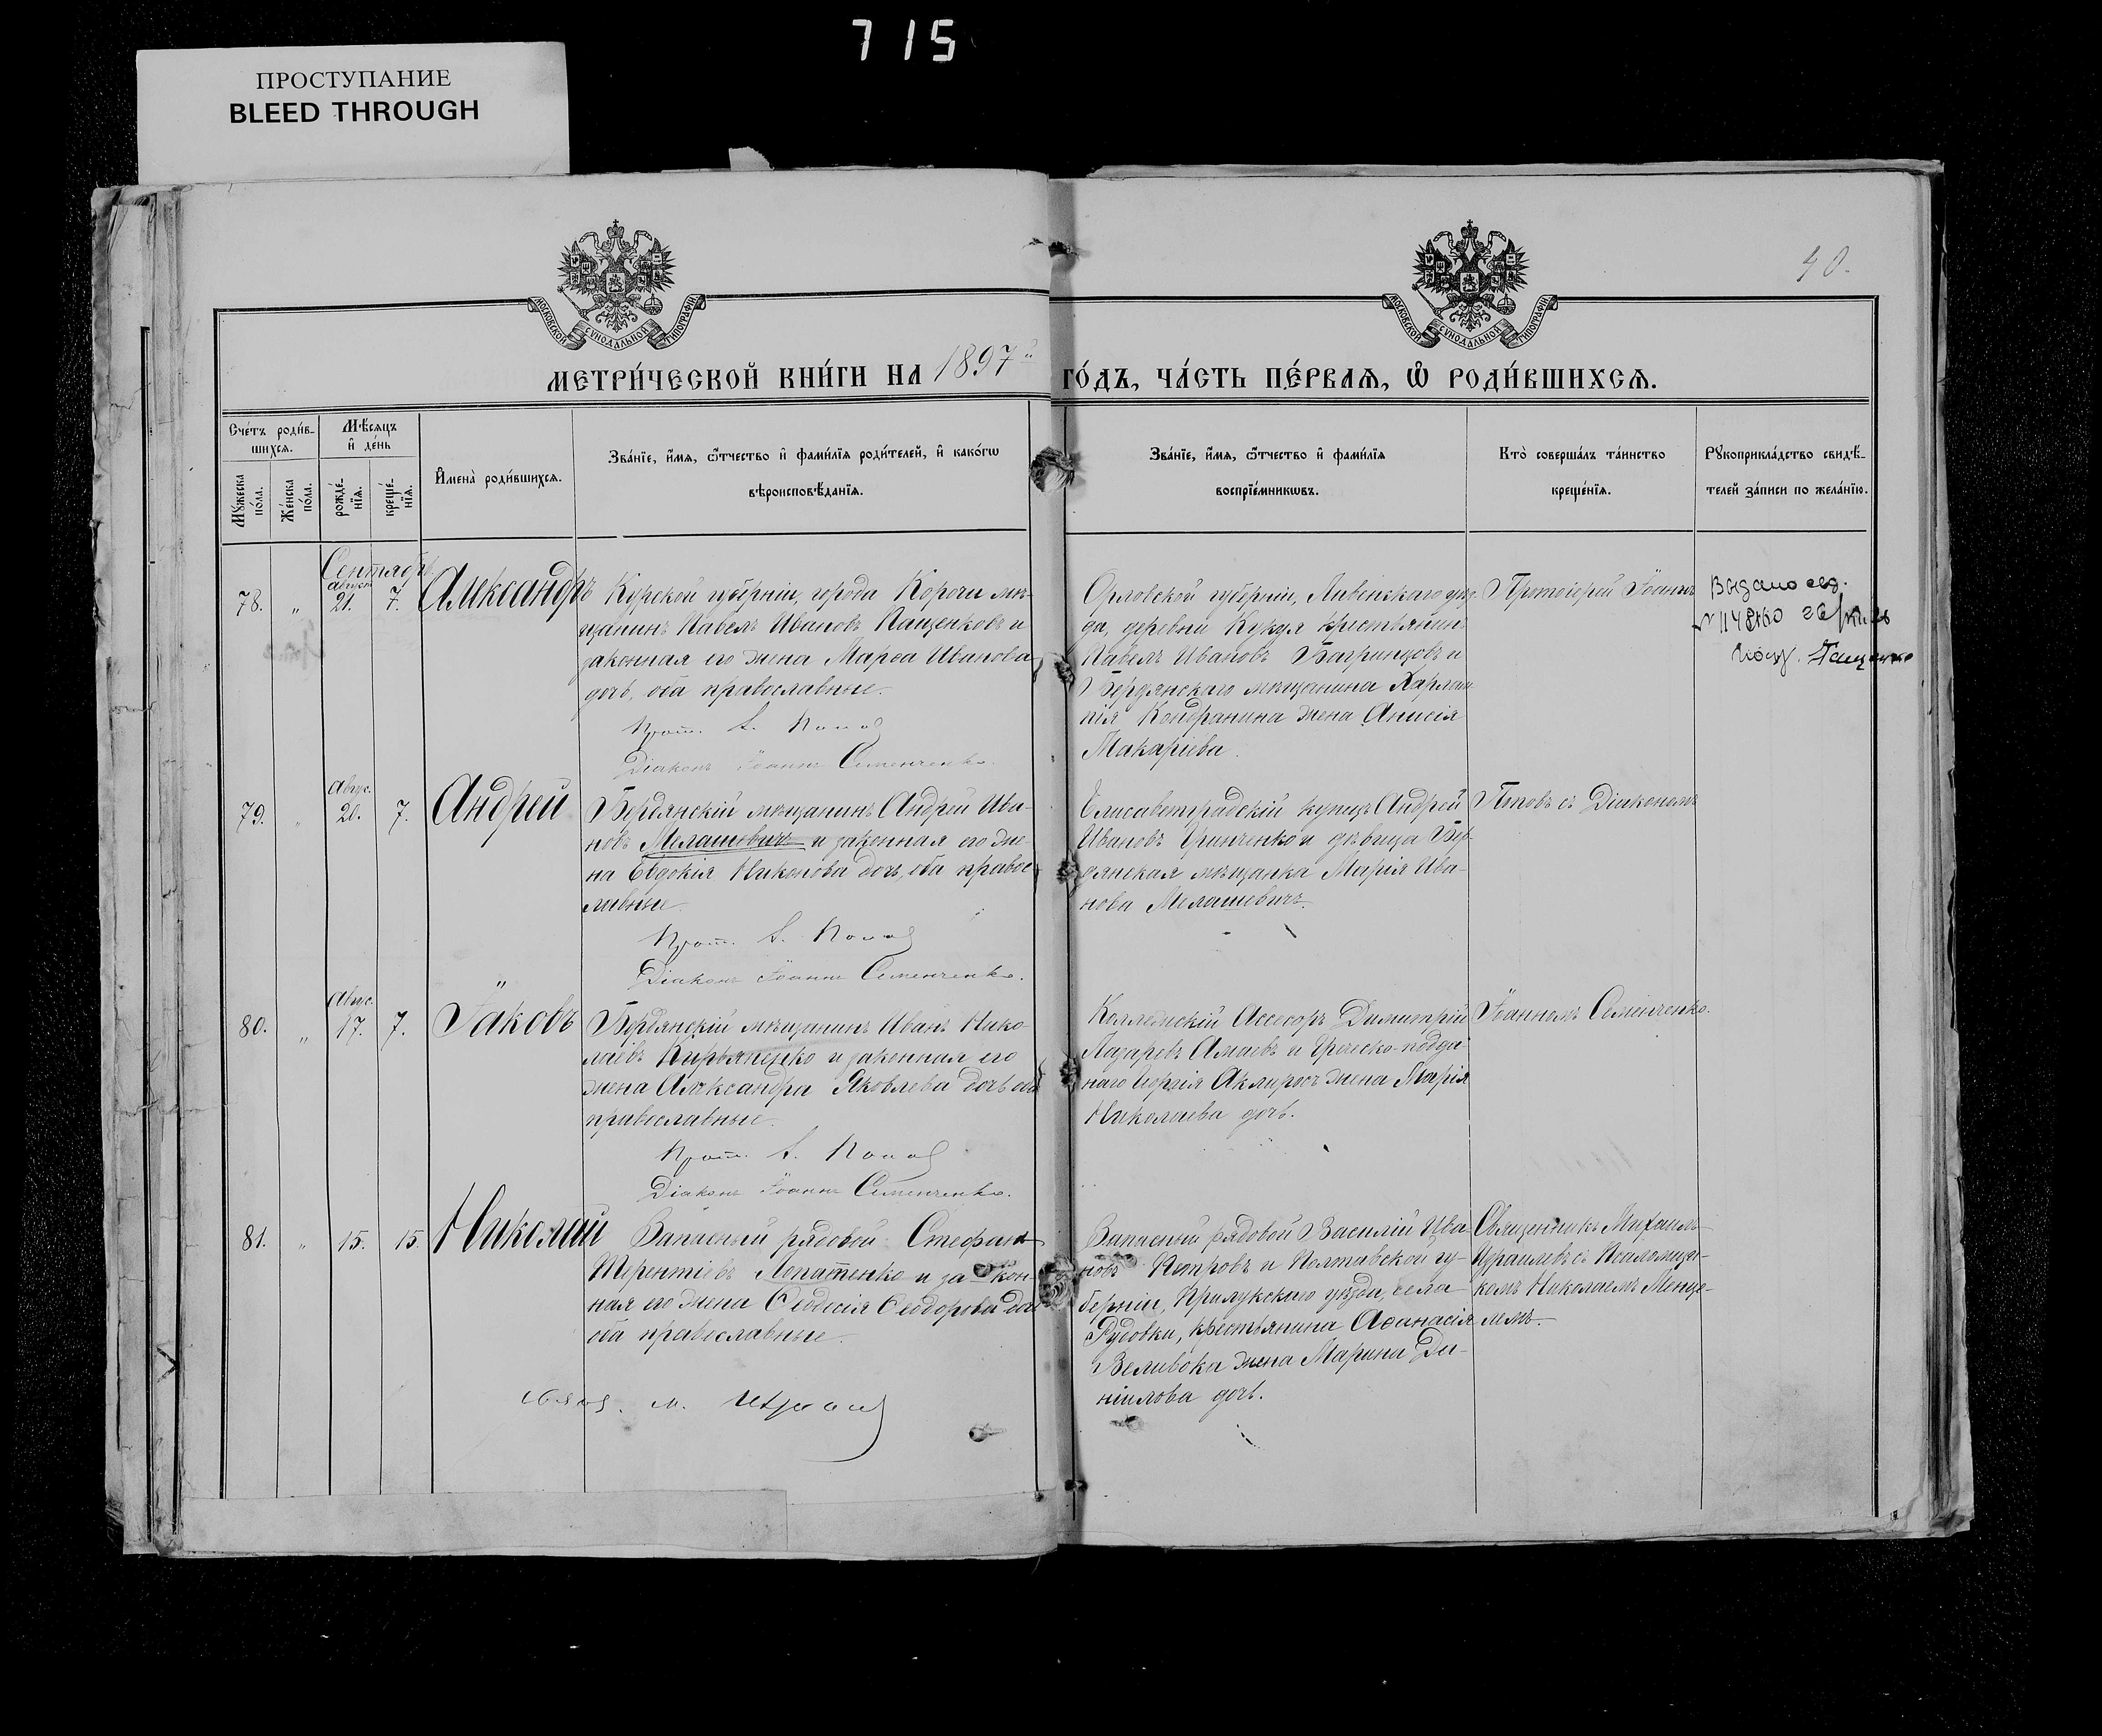 715
ПРОСТУПАНИЕ
BLEED THROUGH
40.
МОСКОВСКОЙ СУНОДАЛЬНОЙ ТИПОГРАФІИ
МОСКОВСКОЙ СУНОДАЛЬНОЙ ТИПОГРАФІИ
МЕТРИ́ЧЕСКОЙ КНИ́ГИ НА 1897й ГО́ДЪ, ЧА́СТЬ ПЕ́РВАѦ, Ѽ РОДИ́ВШИХСѦ.
Сче́тъ роди́в-
шихсѧ.
Мѣ́сѧцъ
и҆ де́нь
Мꙋ́жеска по́ла.
Же́нска по́ла.
рожде́-
нїѧ.
креще́-
нїѧ.
И҆мена̀ роди́вшихсѧ.
Зва́нїе, и҆́мѧ, ѻ҆́тчество и҆ фами́лїѧ роди́телей, и҆ како́гѡ
вѣроисповѣ́данїѧ.
Зва́нїе, и҆́мѧ, ѻ҆́тчество и҆ фами́лїѧ
воспрїе́мникѡвъ.
Кто̀ соверша́лъ та́инство
креще́нїѧ.
Рꙋкоприкла́дство свидѣ́-
телей за́писи по жела́нїю.
Сентябрь
август
78. " 21. 7. Александръ
Курской губерніи, города Корочи мѣ-
щанинъ Павелъ Ивановъ Пащенковъ и
законная его жена Марѳа Иванова
дочь, оба православные.
Прот. А. Попов
Діаконъ Іоаннъ Семенченко.
Орловской губерніи, Ливенскаго уѣз-
да, деревни крестьянинъ
Павелъ Ивановъ Багринцовъ и
Бердянскаго мѣщанина Харлам-
пія Кондранина жена Анисія
Макаріева.
Протоіерей Іоаннъ
Выдано свид.
Пащенко
Авгус.
79. " 20. 7. Андрей
Бердянскій мѣщанинъ Андрей Ива-
новъ Мелашевичъ и законная его же-
на Евдокія Никонова дочь, оба правос-
лавные.
Прот. А. Попов
Діаконъ Іоаннъ Семенченко.
Елисаветградскій купецъ Андрей
Ивановъ Гринченко и дѣвица Бер-
дянская мѣщанка Марія Ива-
нова Мелашевичъ.
Поповъ съ Діакономъ
Авгус.
80. " 17. 7. Іаковъ
Бердянскій мѣщанинъ Иванъ Нико-
лаевъ Кирьяненко и законная его
жена Александра Яковлева дочь оба
православные.
Прот. А. Попов
Діаконъ Іоаннъ Семенченко.
Коллежскій Ассесоръ Димитрій
Лазаревъ Амаевъ и Греческо-подда-
наго Георгія жена Марія
Николаева дочь.
Іоанномъ Семенченко.
81. " 15. 15. Николай
Запасный рядовой Стефанъ
Терентіевъ Лопатенко и закон-
ная его жена Ѳеодосія Ѳеодорова дочь
оба православные.
Свящ. М.
Запасный рядовой Василій Ива-
новъ Петровъ и Полтавской гу-
берніи, Прилукскаго уѣзда, села
Рудовки, крестьянина Аѳанасія
Великока жена Марина Да-
ніилова дочь.
Священникъ Михаилъ
Израилевъ съ Псаломщи-
комъ Николаемъ Менце-
лемъ.